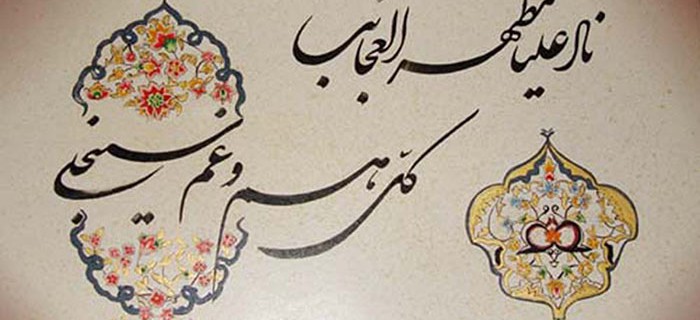 ناد علیا مظهر العجائب
کل هم و غم سینجلی